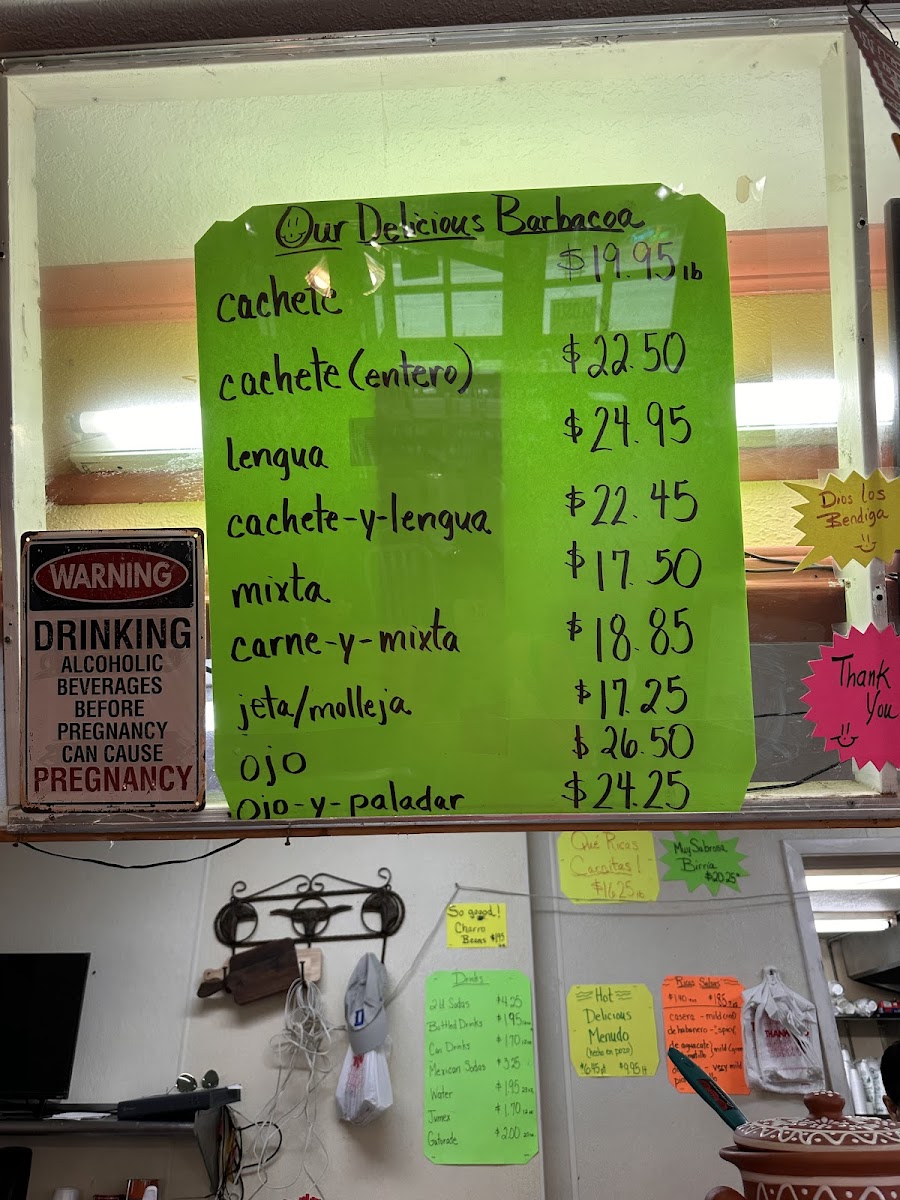 Our Delicious Barbacoa
cachete $19.95 lb
cachete (entero) $22.50
lengua $24.95
cachete-y-lengua $22.45
mixta $17.50
carne-y-mixta $18.85
jeta/molleja $17.25
ojo $26.50
ojo-y-paladar $24.25
WARNING
DRINKING
ALCOHOLIC
BEVERAGES
BEFORE
PREGNANCY
CAN CAUSE
PREGNANCY
Dios los
Bendiga
Thank
You
Qué Ricas
Carnitas!
$16.25 lb
Muy Sabrosa
Birria
$20.25
So goood!
Charro
Beans
Drinks
2 lt Sodas $4.25
Bottled Drinks $1.95
Can Drinks $1.70
Mexican Sodas
Water $1.95
Jumex $1.70
Gatorade $2.00
Hot
Delicious
Menudo
(hecho en pozo)
$6.45 pt $9.95 lt
Ricas Salsas
casera - mild
de habanero
de aguacate
THANK